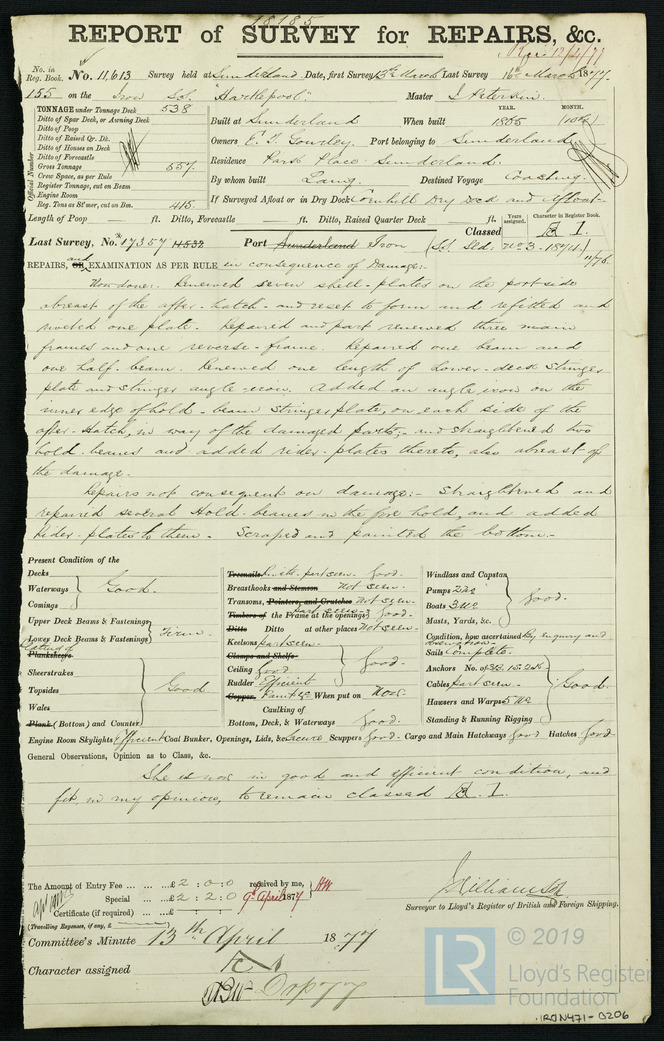 18185
REPORT of SURVEY for REPAIRS, &c.
Rec 12/4/77
No. in Reg. Book. No. 11,613 Survey held at Sunderland. Date, first Survey 13th March Last Survey 16th March 1877.
155 on the Iron Sch. "Hartlepool." Master J. Peterson.
TONNAGE under Tonnage Deck 538
Ditto of Spar Deck, or Awning Deck
Ditto of Poop
Ditto of Raised Qr. Dk.
Ditto of Houses on Deck
Ditto of Forecastle
Gross Tonnage 557
Crew Space, as per Rule
Register Tonnage, cut on Beam
Engine Room
Reg. Tons as St'mer, cut on Bm. 415
Official Number
YEAR. MONTH.
Built at Sunderland When built 1865 (10th)
Owners E. T. Gourley. Port belonging to Sunderland
Residence Park Place Sunderland.
By whom built Laing. Destined Voyage Coasting.
If Surveyed Afloat or in Dry Dock Cornhill Dry Dock and Afloat.
Length of Poop ft. Ditto, Forecastle ft. Ditto, Raised Quarter Deck ft.
Years assigned. Character in Register Book.
Last Survey, No. 17357 Port Sunderland Iron Classed A 1.
(S.S. Sld. No 3-1874) 11/76
REPAIRS, OR and EXAMINATION AS PER RULE in consequence of Damage:
Now done: Renewed seven shell-plates on the port side
abreast of the after-hatch and reset to form and refitted and
rivetted one plate. Repaired and part renewed three main
frames and one reverse-frame. Repaired one beam and
one half-beam. Renewed one length of lower-deck Stringer
plate and Stringer angle-iron. Added an angle iron on the
inner edge of hold-beam Stringer plate, on each side of the
after-Hatch, in way of the damaged parts, and straightened two
hold-beams and added rider-plates thereto, also abreast of
the damage.
Repairs not consequent on damage:- Straightened and
repaired several Hold-beams in the fore hold, and added
Rider-plates to them. Scraped and painted the bottom.
Present Condition of the
Decks
Waterways Good.
Comings
Upper Deck Beams & Fastenings
Lower Deck Beams & Fastenings Firm.
Plating of
Planksheers
Sheerstrakes
Topsides Good
Wales
Plank (Bottom) and Counter
Treenails Rivets. part seen. Good.
Breasthooks and Stemson Not seen.
Transoms, Pointers, and Crutches Not seen.
Timbers of the Frame at the openings part seen Good.
Ditto Ditto at other places Not seen
Keelsons part seen.
Clamps and Shelfs
Ceiling Good Good.
Rudder Efficient
Copper Painted When put on Now
Caulking of
Bottom, Deck, & Waterways Good.
Windlass and Capstan
Pumps 2 No
Boats 3 No Good.
Masts, Yards, &c.
Condition, how ascertained By enquiry and observation
Sails Complete.
Anchors No. of 3B. 1S. 2K
Cables part seen. Good.
Hawsers and Warps 5 No
Standing & Running Rigging
Engine Room Skylights Efficient Coal Bunker, Openings, Lids, &c Secure Scuppers Good. Cargo and Main Hatchways Good Hatches Good
General Observations, Opinion as to Class, &c.
She is now in good and efficient condition, and
fit, in my opinion, to remain classed A 1.
The Amount of Entry Fee ... ... ... £ 2 : 0 : 0 received by me,
Special ... ... £ 2 : 2 : 0 9th April 1877 HW
Certificate (if required) ... £
(Travelling Expenses, if any, £
Surveyor to Lloyd's Register of British and Foreign Shipping.
Committee's Minute 13th April 1877
Character assigned
© 2019
Lloyd's Register
Foundation
LR
IRON471-0206